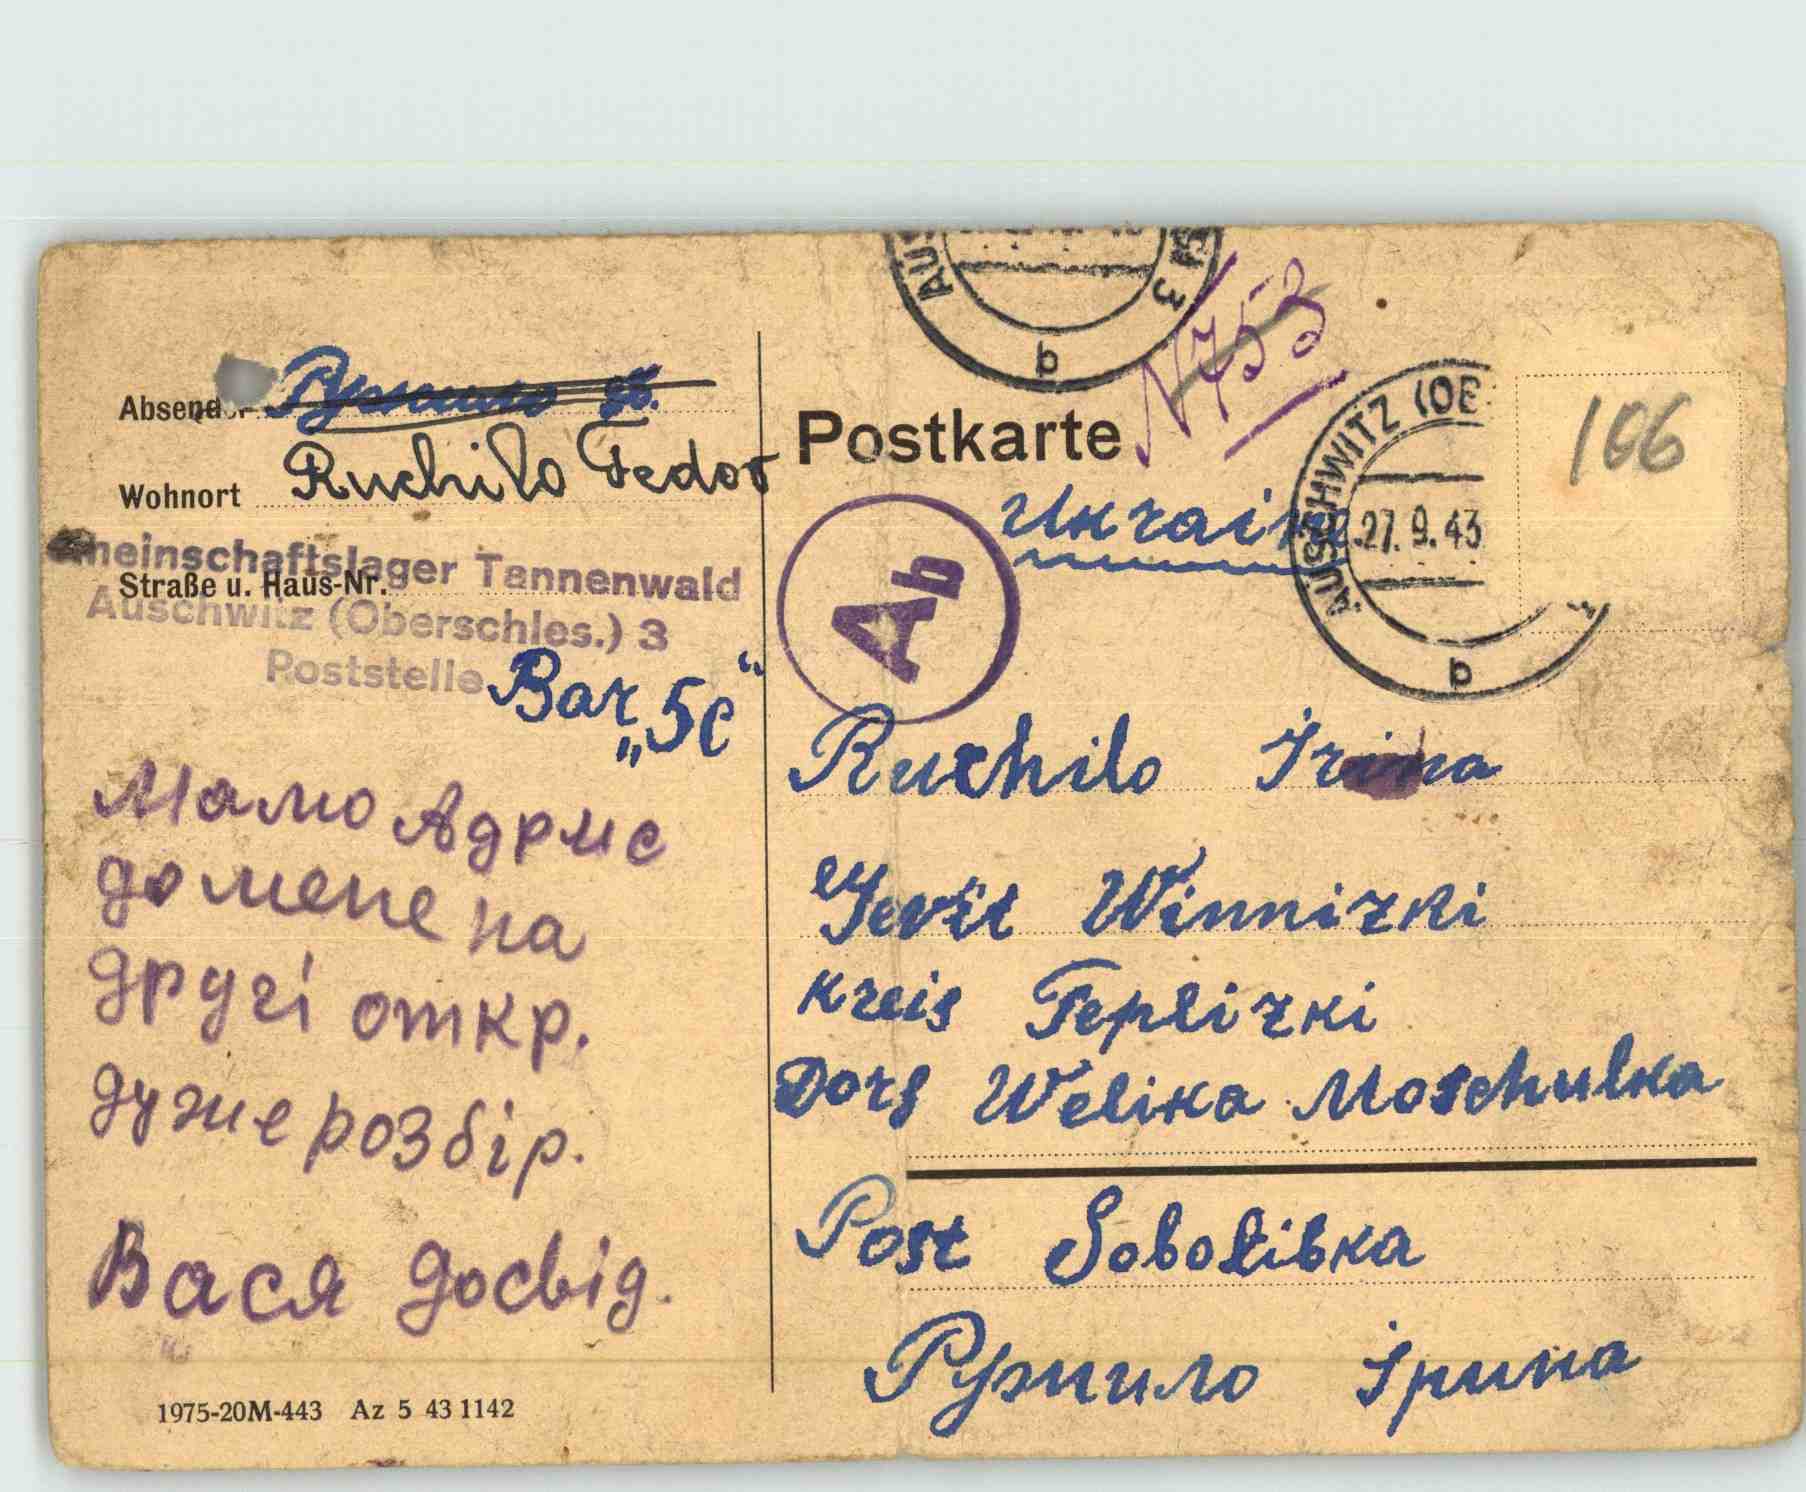 Absender
Ruchilo Fedor
Wohnort
meinschaftslager Tannenwald
Straße u. Haus-Nr.
Auschwitz (Oberschles.) 3
Poststelle
Bar „5C“
Мамо Адрис
до мене на
другі откр.
дуже розбір.
Вася досвід.
1975-20M-443 Az 5 43 1142
3
b
N 753
Postkarte
Ukraine
Ab
AUSCHWITZ (OB
27.9.43
b
106
Ruchilo Irina
Winnizki
Kreis Teplizki
Dorf Welika Moschulka
Post Sobotibka
Ружило Ірина